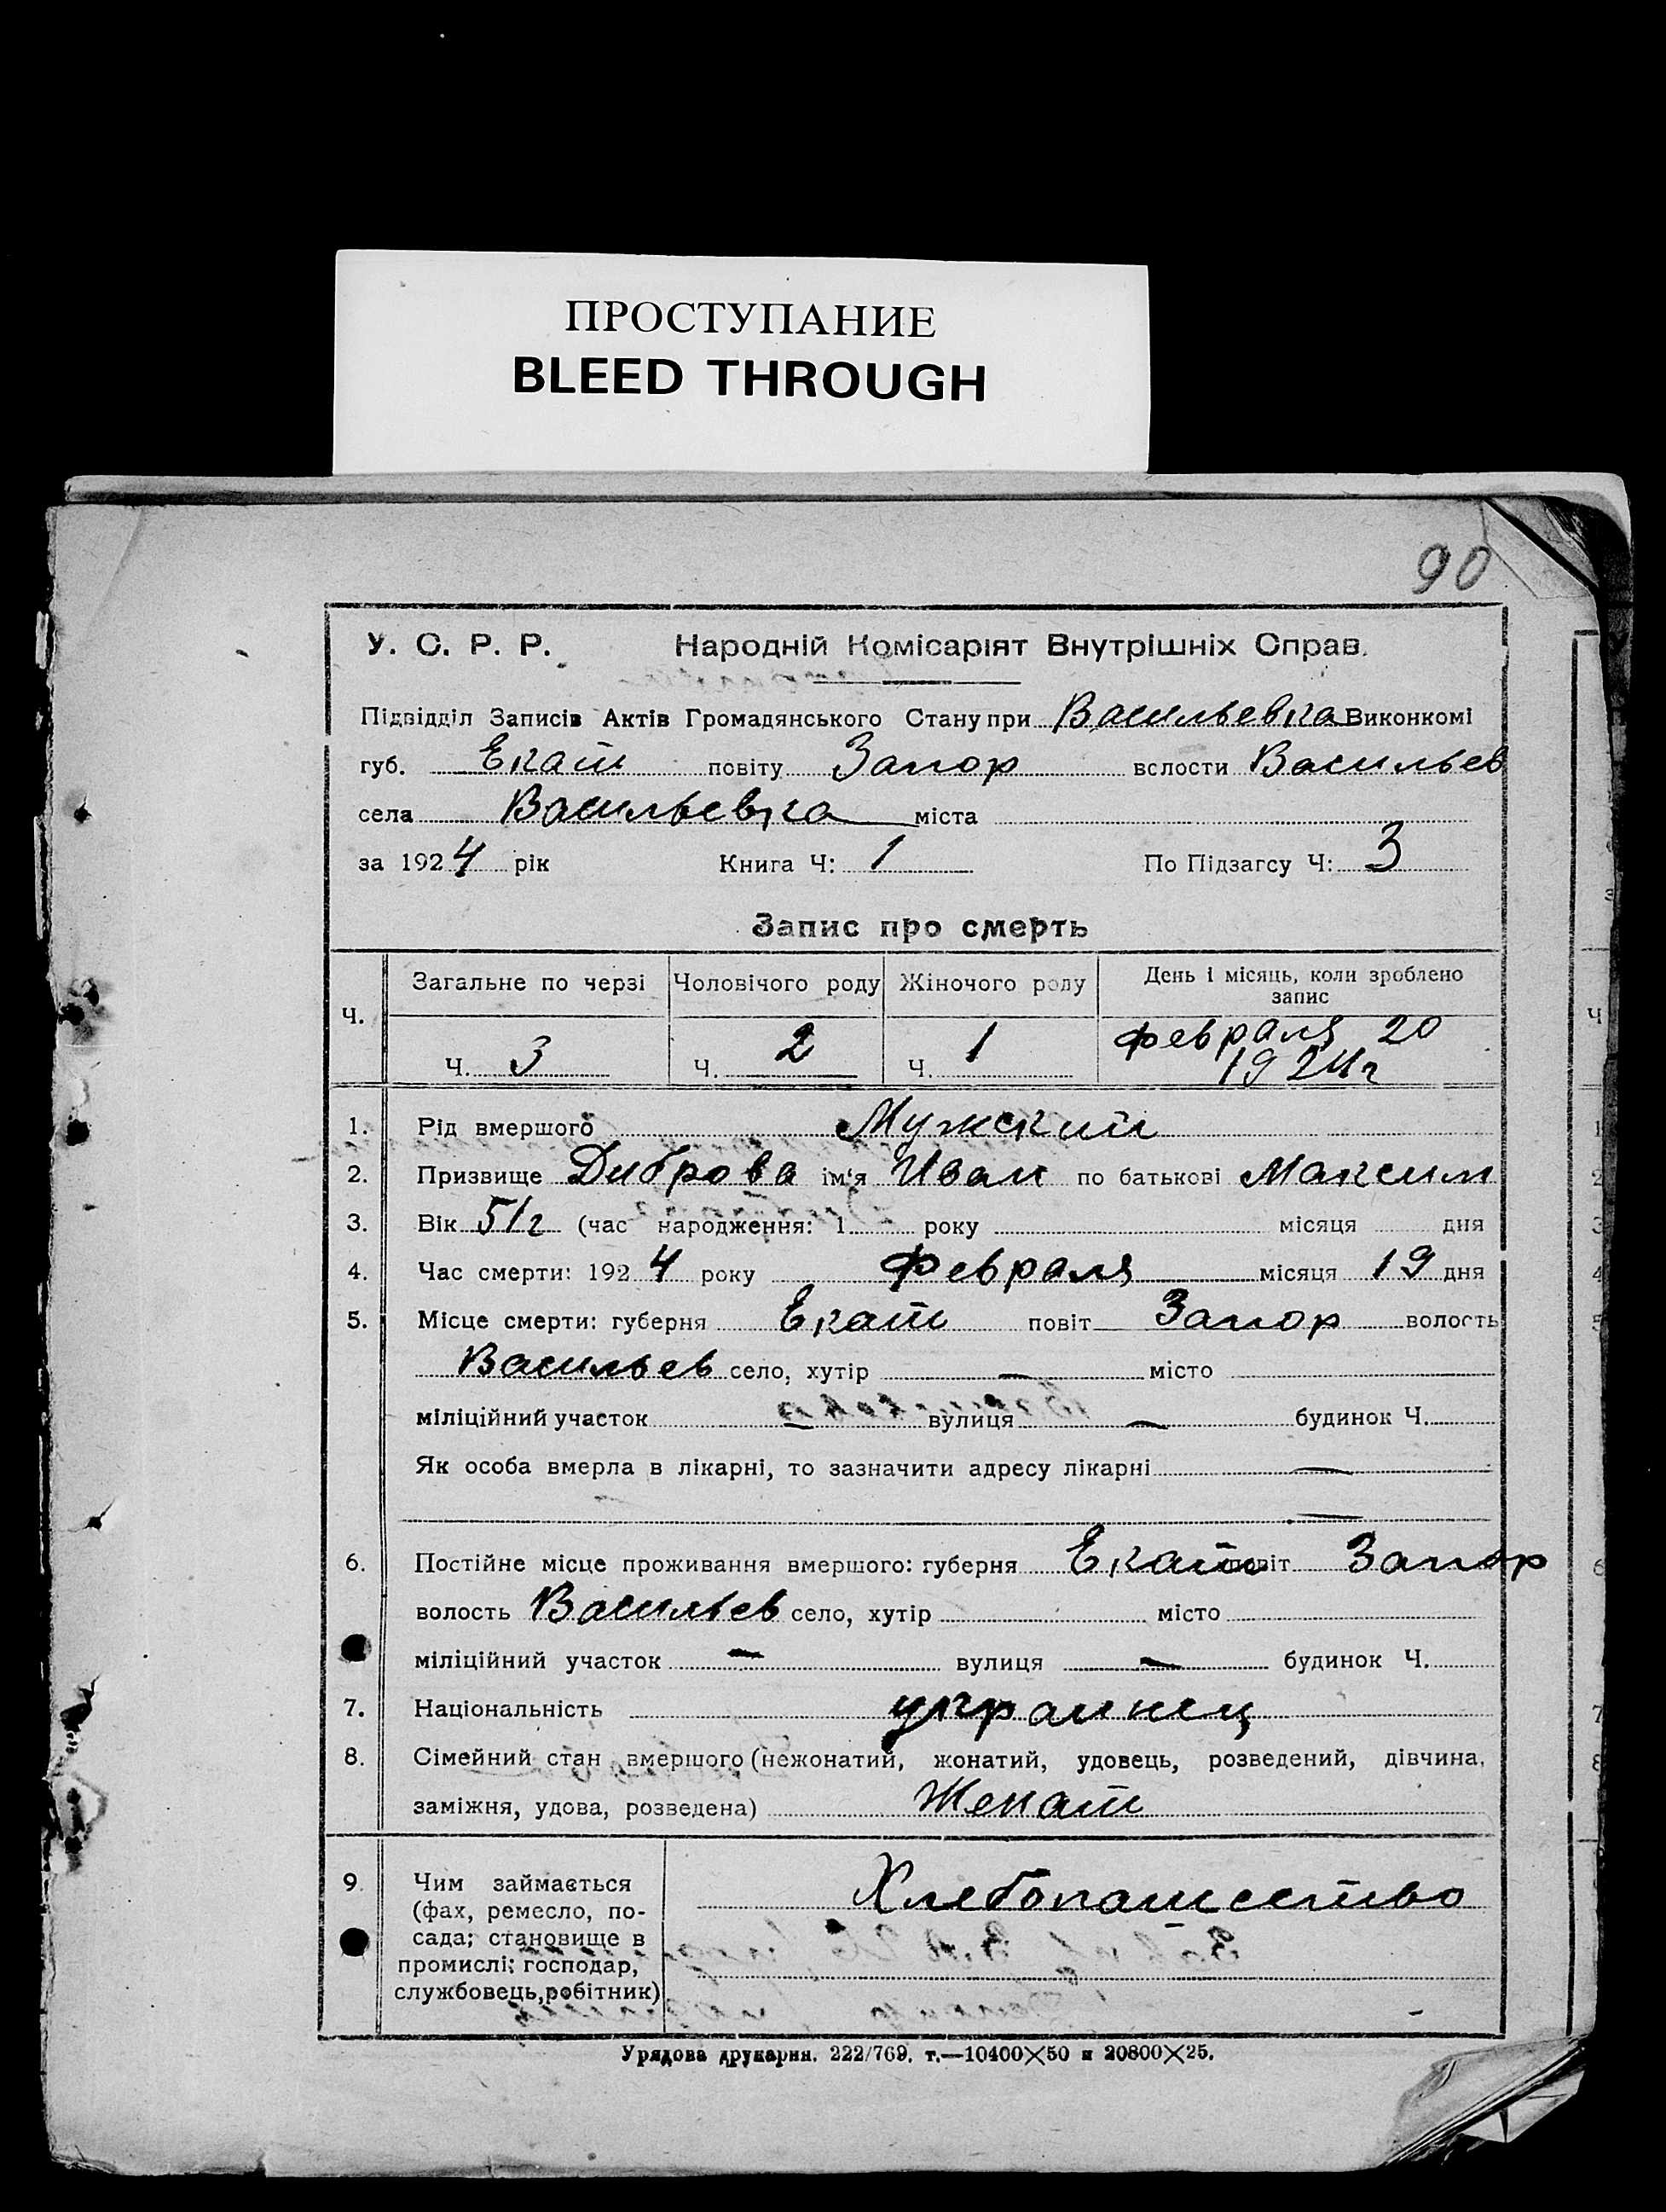 ПРОСТУПАНИЕ
BLEED THROUGH
90
У. С. Р. Р. Народній Комісаріят Внутрішніх Справ.
Підвідділ Записів Актів Громадянського Стану при Васильевка Виконкомі
губ. Екат повіту Запор волости Васильев
села Васильевка міста
за 1924 рік Книга Ч: 1 По Підзагсу Ч: 3
Запис про смерть
Ч. Загальне по черзі Чоловічого роду Жіночого роду День і місяць, коли зроблено запис
Ч. 3 Ч. 2 Ч. 1 февраля 20
1924г
1. Рід вмершого Мужский
2. Призвище Диброва ім'я Иван по батькові Максим
3. Вік 51г (час народження: 1 року місяця дня
4. Час смерти: 1924 року февраля місяця 19 дня
5. Місце смерти: губерня Екат повіт Запор волость
Васильев село, хутір — місто
міліційний участок — вулиця — будинок Ч.
Як особа вмерла в лікарні, то зазначити адресу лікарні —
—
6. Постійне місце проживання вмершого: губерня Екат повіт Запор
волость Васильев село, хутір місто
міліційний участок — вулиця — будинок Ч.
7. Національність украинец
8. Сімейний стан вмершого (нежонатий, жонатий, удовець, розведений, дівчина,
заміжня, удова, розведена) Женат
9. Чим займається Хлебопашество
(фах, ремесло, по-
сада; становище в
промислі; господар,
службовець, робітник)
Урядова друкарня. 222/769. т.—10400×50 и 20800×25.